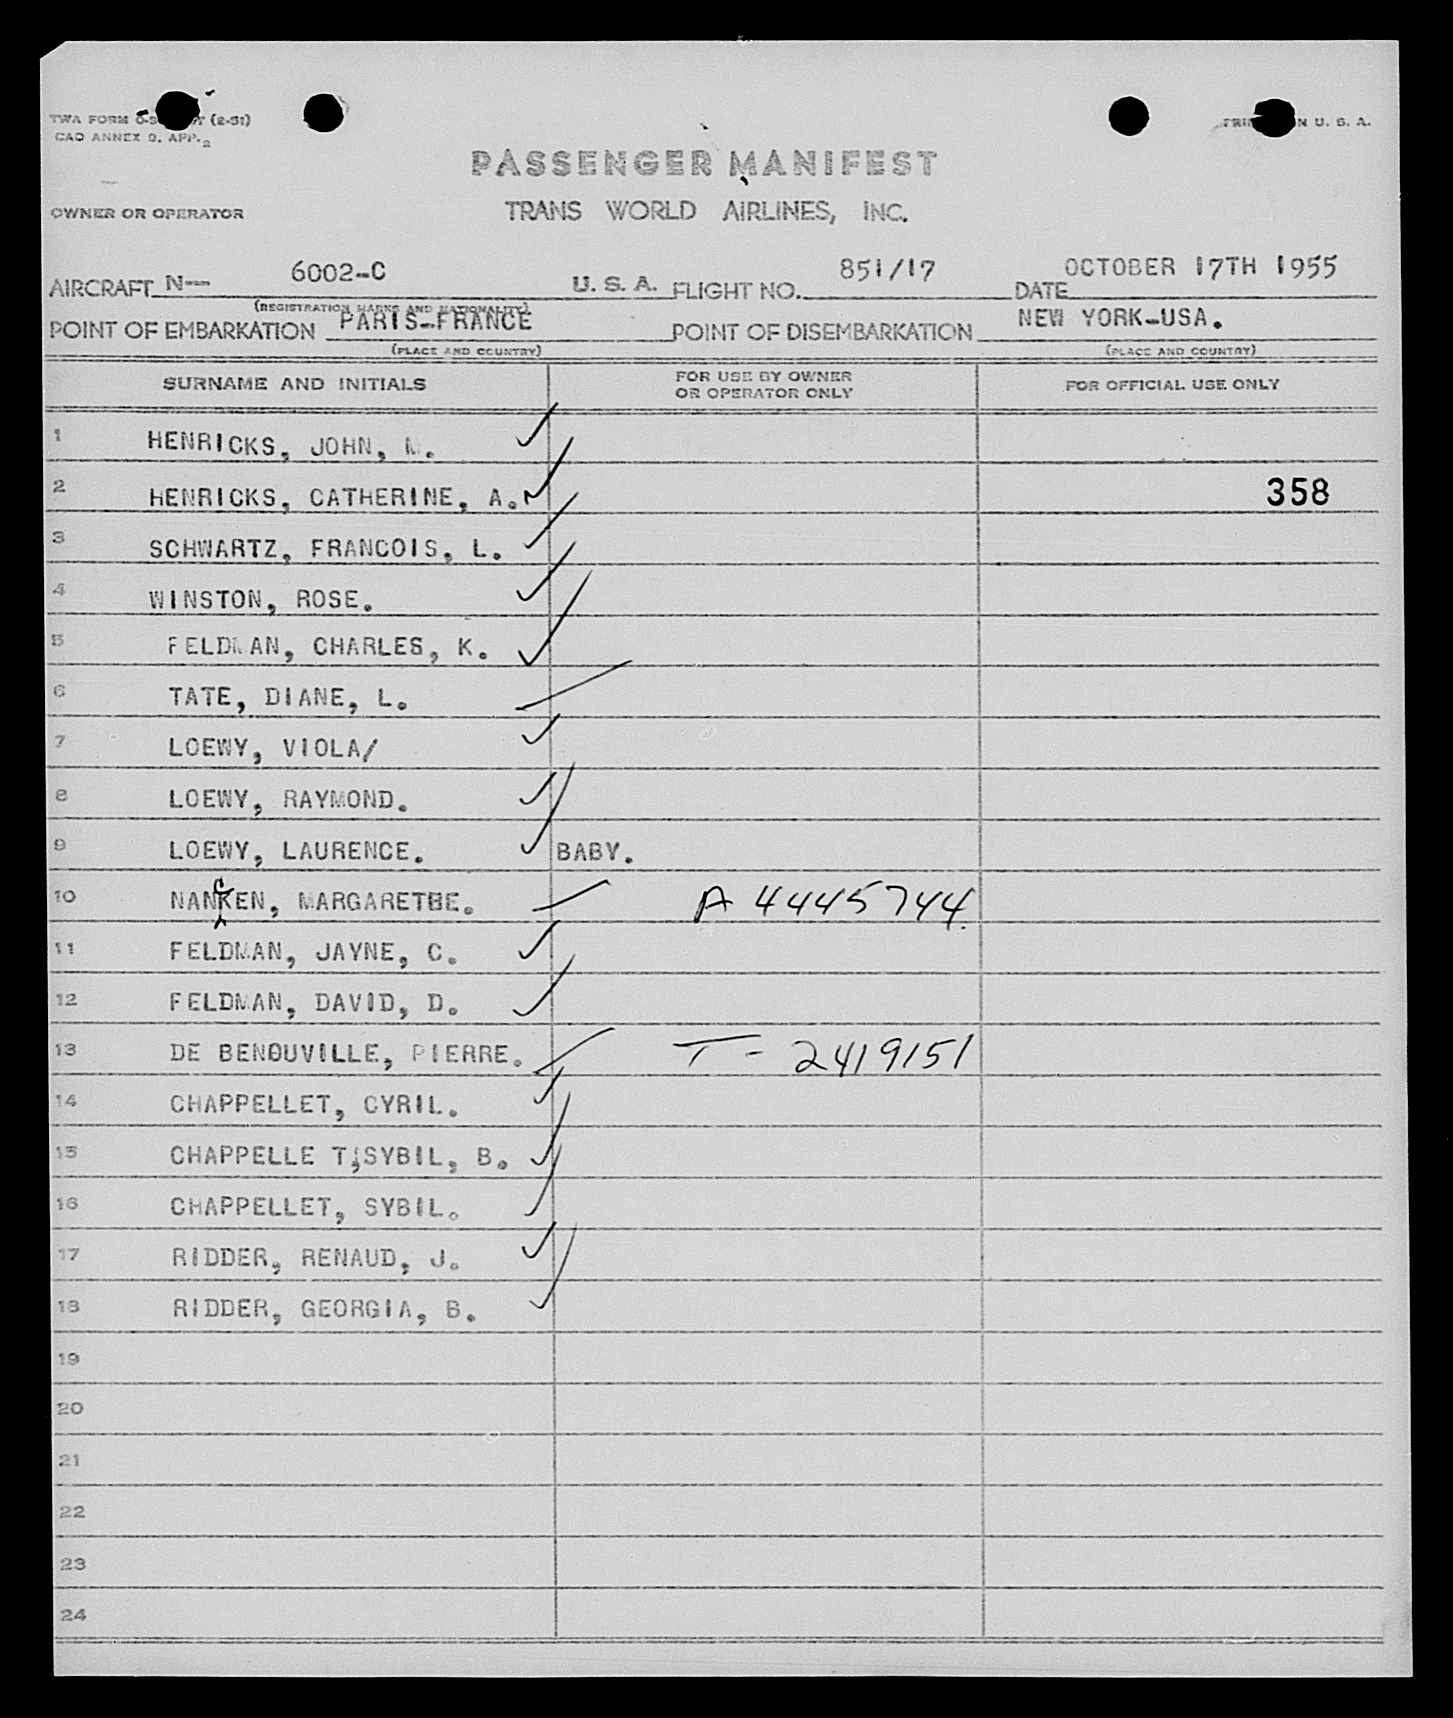 TWA FORM (2-51)
PRINTED IN U. S. A.
CAO ANNEX 9. APP. 2
PASSENGER MANIFEST
OWNER OR OPERATOR
TRANS WORLD AIRLINES, INC.
AIRCRAFT N— 6002-C U. S. A. FLIGHT NO. 851/17 DATE OCTOBER 17TH 1955
(REGISTRATION MARKS AND NATIONALITY)
POINT OF EMBARKATION PARIS-FRANCE POINT OF DISEMBARKATION NEW YORK-USA.
(PLACE AND COUNTRY) (PLACE AND COUNTRY)
SURNAME AND INITIALS FOR USE BY OWNER OR OPERATOR ONLY FOR OFFICIAL USE ONLY
1 HENRICKS, JOHN, M. ✓
2 HENRICKS, CATHERINE, A. ✓ 358
3 SCHWARTZ, FRANCOIS, L. ✓
4 WINSTON, ROSE. ✓
5 FELDMAN, CHARLES, K. ✓
6 TATE, DIANE, L. ✓
7 LOEWY, VIOLA/ ✓
8 LOEWY, RAYMOND. ✓
9 LOEWY, LAURENCE. ✓ BABY.
10 NANCKEN, MARGARETHE. ✓ A 4445744
11 FELDMAN, JAYNE, C. ✓
12 FELDMAN, DAVID, D. ✓
13 DE BENOUVILLE, PIERRE. ✓ T - 2419151
14 CHAPPELLET, CYRIL. ✓
15 CHAPPELLE T,SYBIL, B. ✓
16 CHAPPELLET, SYBIL. ✓
17 RIDDER, RENAUD, J. ✓
18 RIDDER, GEORGIA, B. ✓
19
20
21
22
23
24